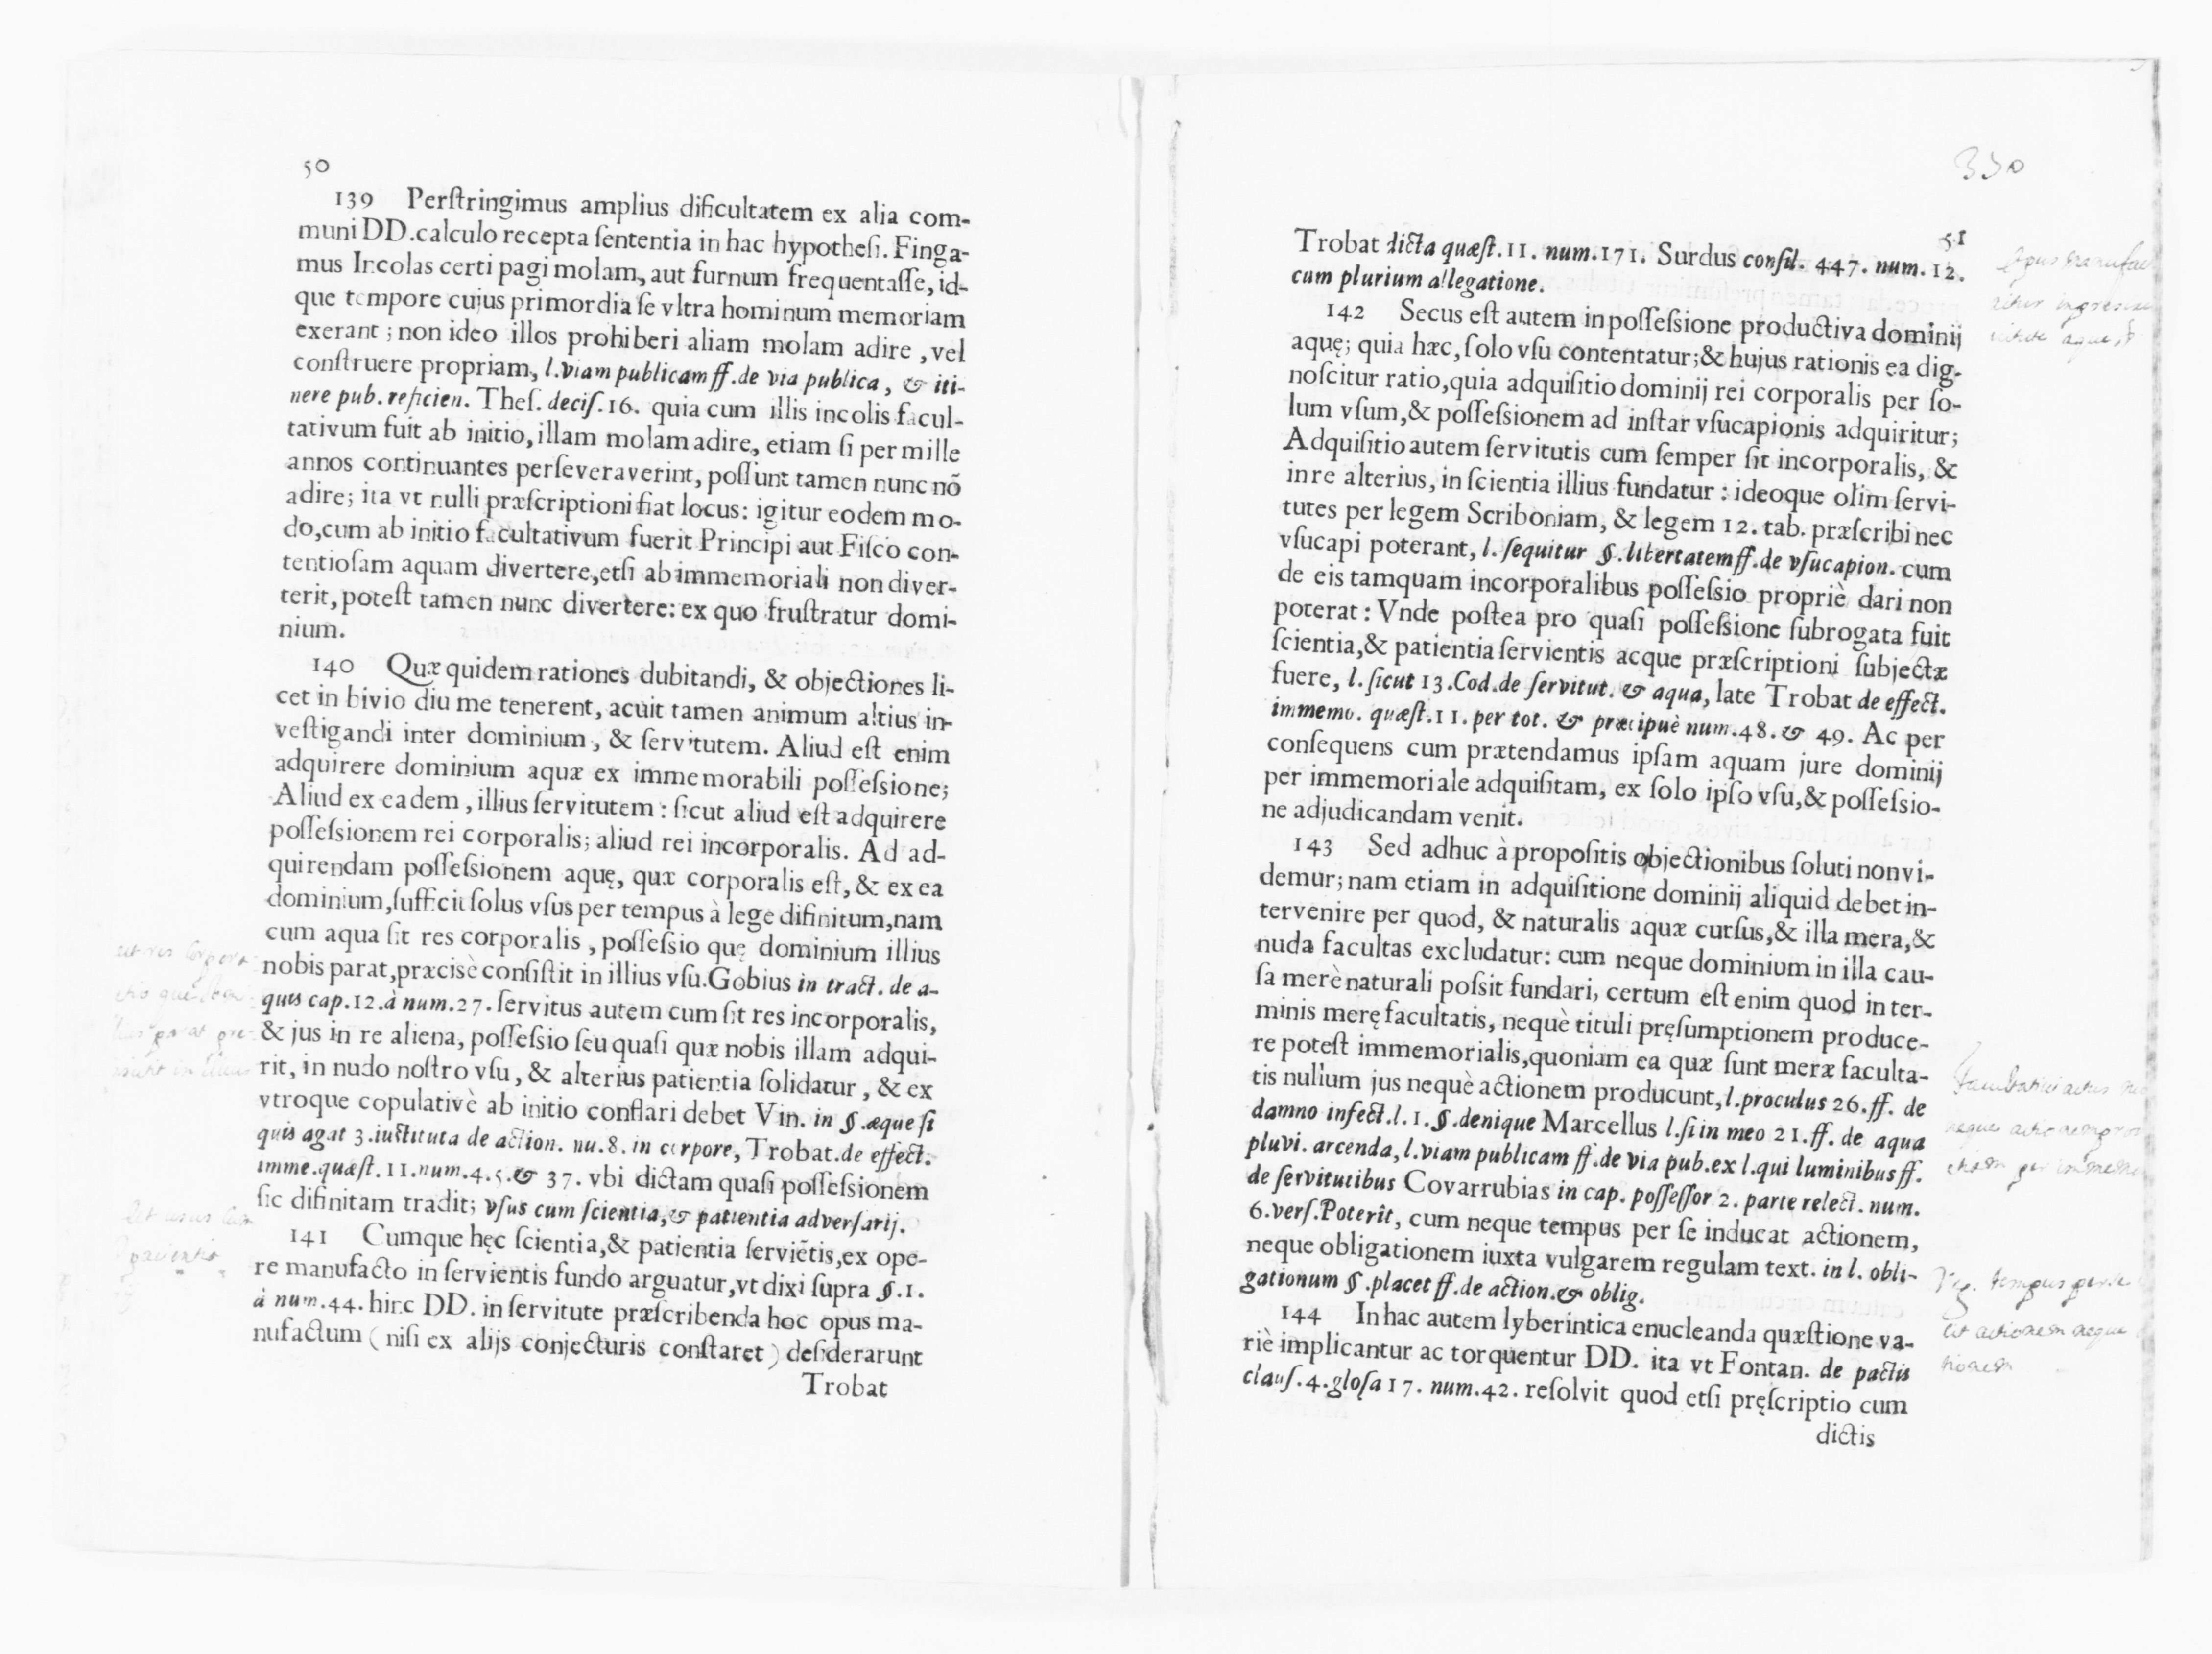 50
139 Perſtringimus amplius dificultatem ex alia com-
muni DD.calculo recepta ſententia in hac hypotheſi. Finga-
mus Incolas certi pagi molam, aut furnum frequentaſſe, id-
que tempore cujus primordia ſe vltra hominum memoriam
exerant; non ideo illos prohiberi aliam molam adire, vel
conſtruere propriam, l.viam publicam ff.de via publica, & iti-
nere pub. reficien. Theſ. deciſ.16. quia cum illis incolis facul-
tativum fuit ab initio, illam molam adire, etiam ſi per mille
annos continuantes perſeveraverint, poſſunt tamen nunc nõ
adire; ita vt nulli præſcriptioni fiat locus: igitur eodem mo-
do,cum ab initio facultativum fuerit Principi aut Fiſco con-
tentioſam aquam divertere,etſi ab immemoriali non diver-
terit, poteſt tamen nunc divertere: ex quo fruſtratur domi-
nium.
140 Quæ quidem rationes dubitandi, & objectiones li-
cet in bivio diu me tenerent, acuit tamen animum altius in-
veſtigandi inter dominium, & ſervitutem. Aliud eſt enim
adquirere dominium aquæ ex immemorabili poſſeſsione;
Aliud ex eadem, illius ſervitutem: ſicut aliud eſt adquirere
poſſeſsionem rei corporalis; aliud rei incorporalis. Ad ad-
quirendam poſſeſsionem aquę, quæ corporalis eſt, & ex ea
dominium,ſufficit ſolus vſus per tempus à lege difinitum,nam
cum aqua ſit res corporalis, poſſeſsio quę dominium illius
nobis parat,præcisè conſiſtit in illius vſu.Gobius in tract. de a-
quis cap.12.à num.27. ſervitus autem cum ſit res incorporalis,
& jus in re aliena, poſſeſsio ſeu quaſi quæ nobis illam adqui-
rit, in nudo noſtro vſu, & alterius patientia ſolidatur, & ex
vtroque copulativè ab initio conflari debet Vin. in §.æque ſi
quis agat 3.inſtituta de action. nu.8. in corpore, Trobat.de effect.
imme.quæſt.11.num.4.5.& 37. vbi dictam quaſi poſſeſsionem
ſic difinitam tradit; vſus cum ſcientia,& patientia adverſarij.
141 Cumque hęc ſcientia,& patientia ſerviẽtis,ex ope-
re manufacto in ſervientis fundo arguatur,vt dixi ſupra §.1.
à num.44. hinc DD. in ſervitute præſcribenda hoc opus ma-
nufactum (niſi ex alijs conjecturis conſtaret) deſiderarunt
Trobat
51
Trobat dicta quæſt.11. num.171. Surdus conſil. 447. num.12.
cum plurium allegatione.
142 Secus eſt autem in poſſeſsione productiva dominij
aquę; quia hæc, ſolo vſu contentatur;& hujus rationis ea dig-
noſcitur ratio,quia adquiſitio dominij rei corporalis per ſo-
lum vſum,& poſſeſsionem ad inſtar vſucapionis adquiritur;
Adquiſitio autem ſervitutis cum ſemper ſit incorporalis, &
in re alterius, in ſcientia illius fundatur: ideoque olim ſervi-
tutes per legem Scriboniam, & legem 12. tab. præſcribi nec
vſucapi poterant, l. ſequitur §.libertatem ff.de vſucapion. cum
de eis tamquam incorporalibus poſſeſsio propriè dari non
poterat: Vnde poſtea pro quaſi poſſeſsione ſubrogata fuit
ſcientia,& patientia ſervientis acque præſcriptioni ſubjectæ
fuere, l. ſicut 13.Cod.de ſervitut. & aqua, late Trobat de effect.
immemo. quæſt.11. per tot. & præcipuè num.48. & 49. Ac per
conſequens cum prætendamus ipſam aquam jure dominij
per immemoriale adquiſitam, ex ſolo ipſo vſu,& poſſeſsio-
ne adjudicandam venit.
143 Sed adhuc à propoſitis objectionibus ſoluti non vi-
demur; nam etiam in adquiſitione dominij aliquid debet in-
tervenire per quod, & naturalis aquæ curſus,& illa mera,&
nuda facultas excludatur: cum neque dominium in illa cau-
ſa merè naturali poſsit fundari, certum eſt enim quod in ter-
minis merę facultatis, nequè tituli pręſumptionem produce-
re poteſt immemorialis,quoniam ea quæ ſunt meræ faculta-
tis nullum jus nequè actionem producunt,l.proculus 26.ff. de
damno infect.l.1.§.denique Marcellus l.ſi in meo 21.ff. de aqua
pluvi. arcenda, l.viam publicam ff.de via pub.ex l.qui luminibus ff.
de ſervitutibus Covarrubias in cap. poſſeſſor 2. parte relect. num.
6.verſ.Poterit, cum neque tempus per ſe inducat actionem,
neque obligationem iuxta vulgarem regulam text. in l. obli-
gationum §.placet ff.de action.& oblig.
144 In hac autem lyberintica enucleanda quæſtione va-
riè implicantur ac torquentur DD. ita vt Fontan. de pactis
clauſ.4.gloſa 17. num.42. reſolvit quod etſi pręſcriptio cum
dictis